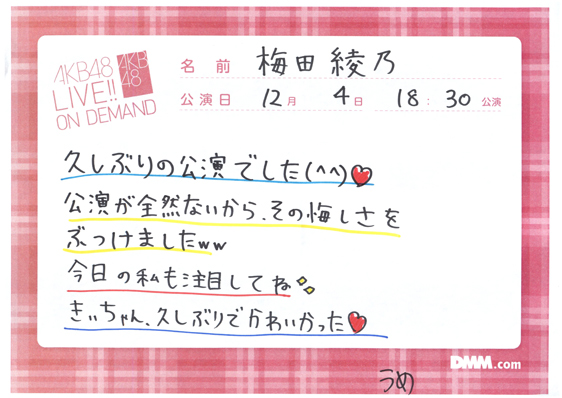 AKB48
LIVE!!
ON DEMAND
AKB
48
名前 梅田綾乃
公演日 12月 4日 18:30公演
久しぶりの公演でした(^^)
公演が全然ないから、その悔しさを
ぶつけましたww
今日の私も注目してね
きぃちゃん、久しぶりでかわいかった
DMM.com
うめ